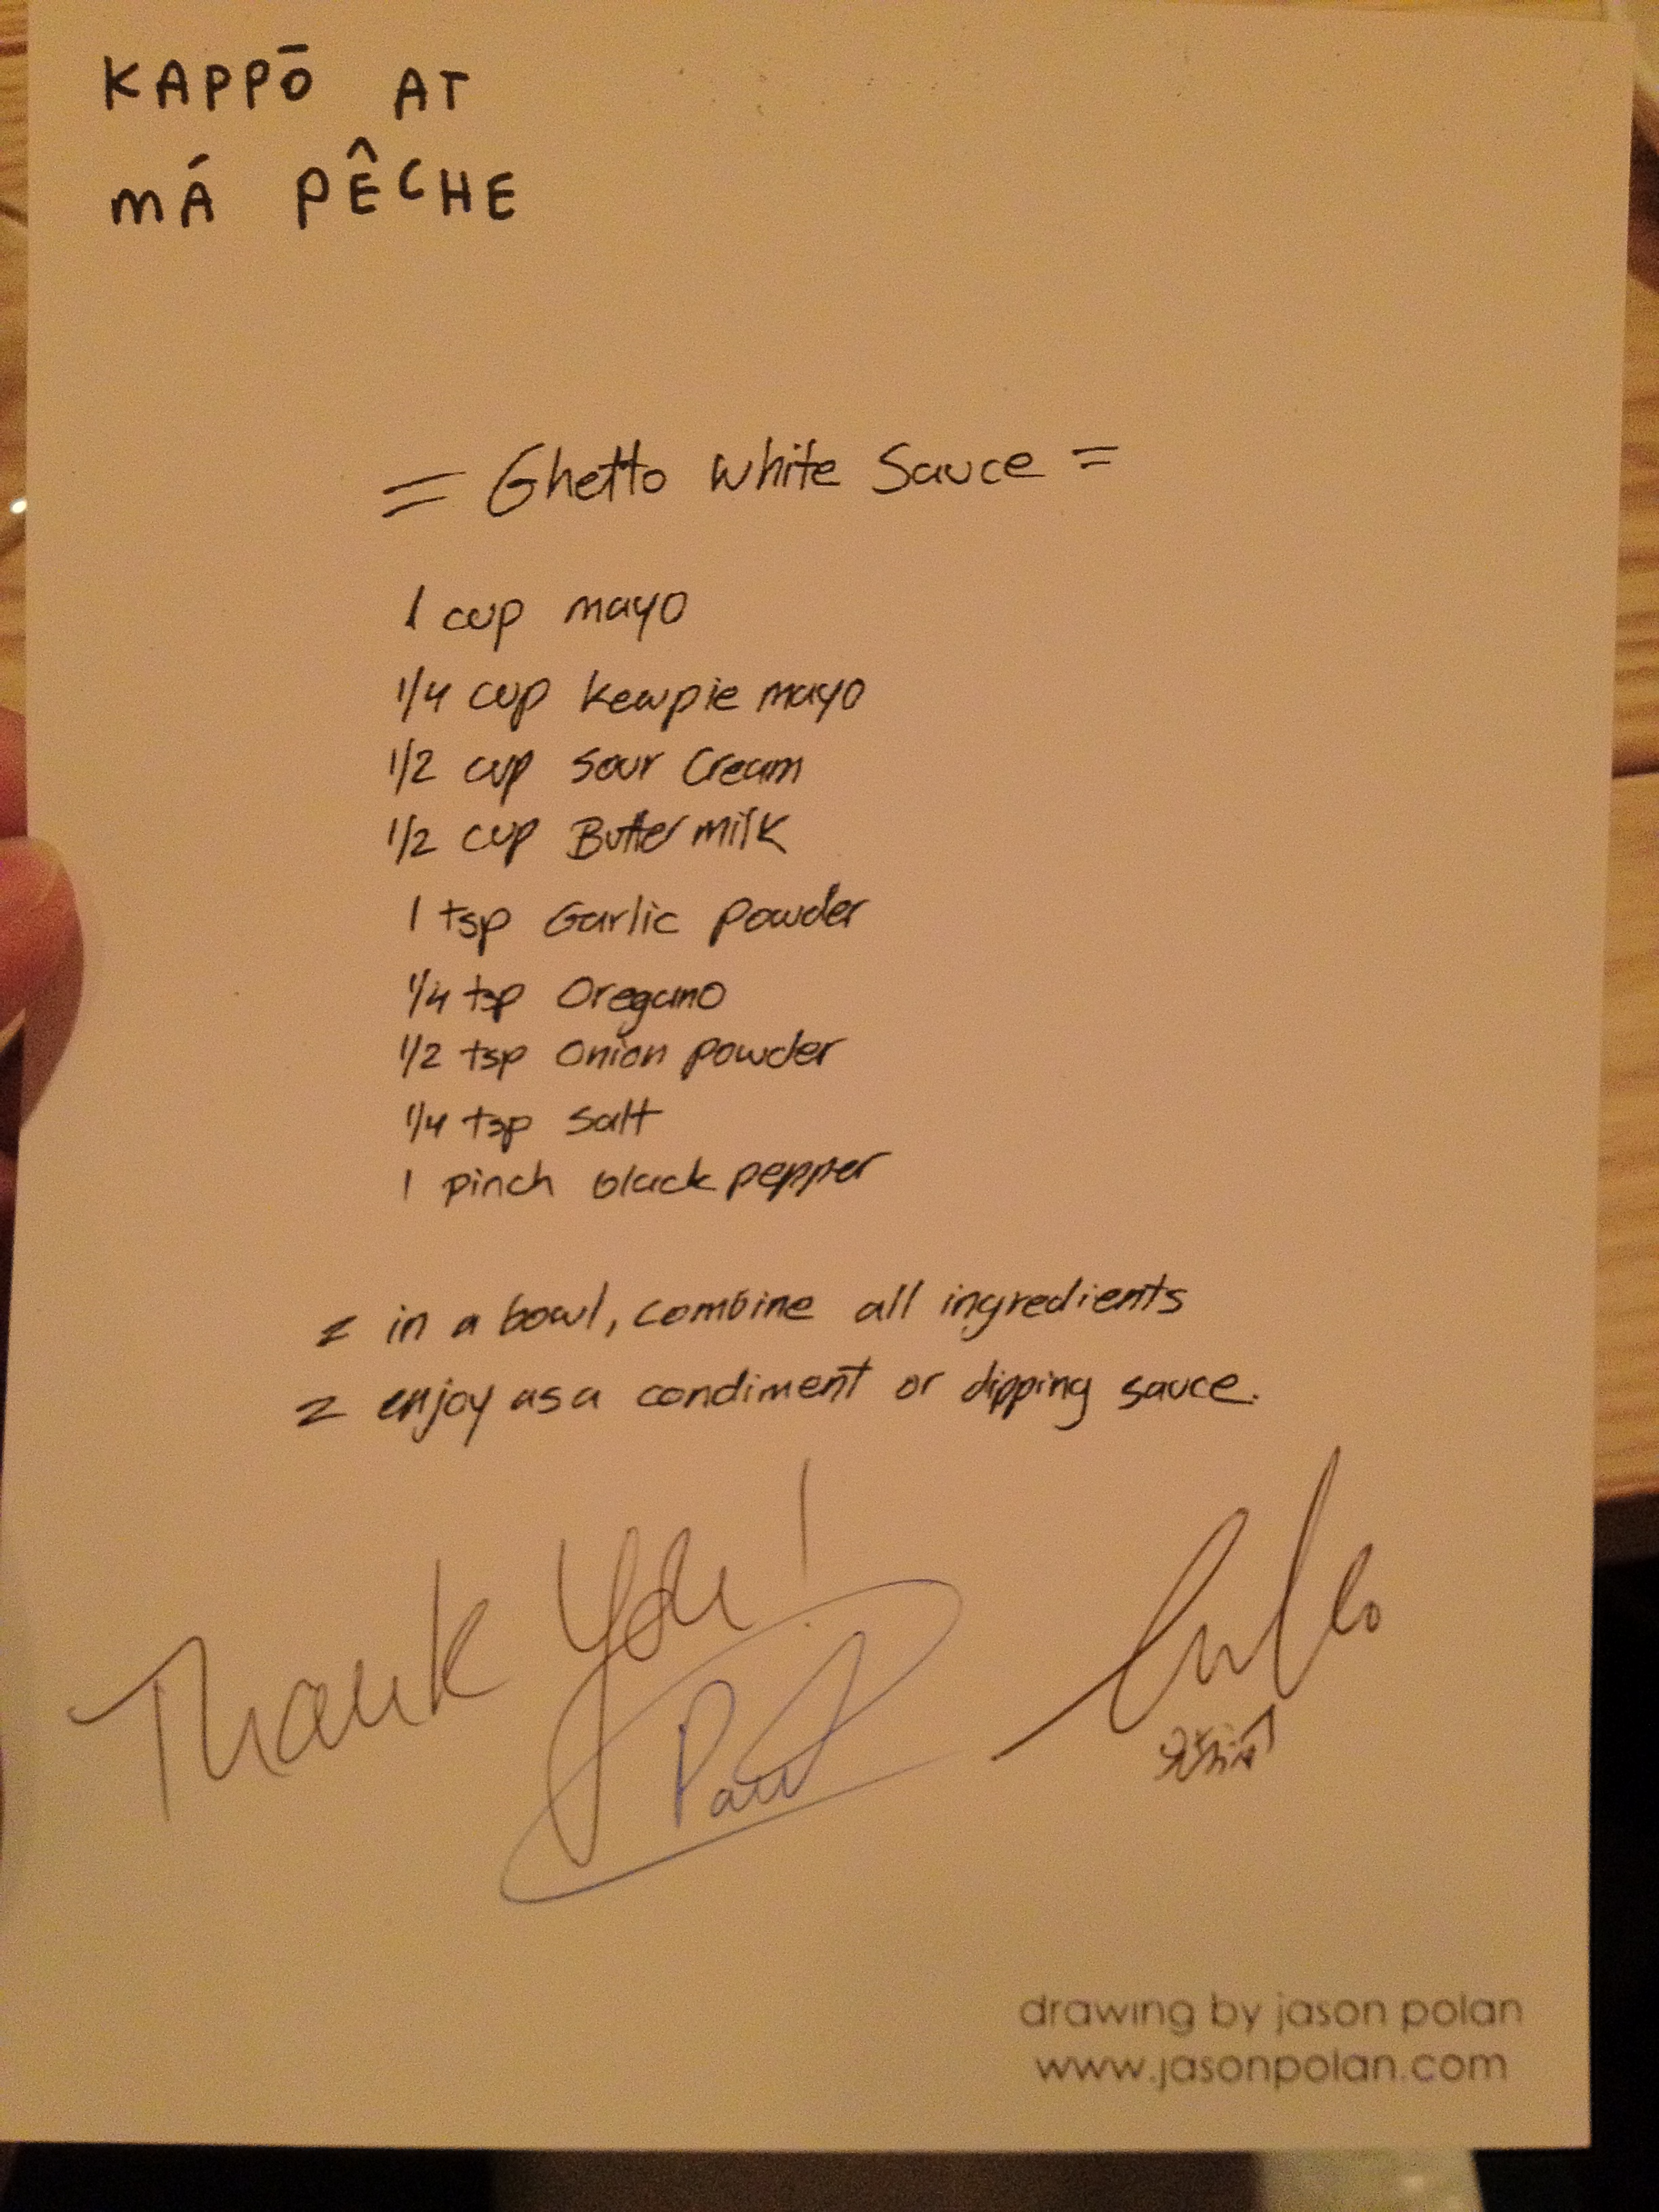 KAPPŌ AT
MÁ PÊCHE
= Ghetto White Sauce =
1 cup mayo
1/4 cup kewpie mayo
1/2 cup Sour Cream
1/2 cup Buttermilk
1 tsp Garlic Powder
1/4 tsp Oregano
1/2 tsp Onion powder
1/4 tsp Salt
1 pinch black pepper
= in a bowl, combine all ingredients
= enjoy as a condiment or dipping sauce.
Thank You!
Paul
drawing by jason polan
www.jasonpolan.com